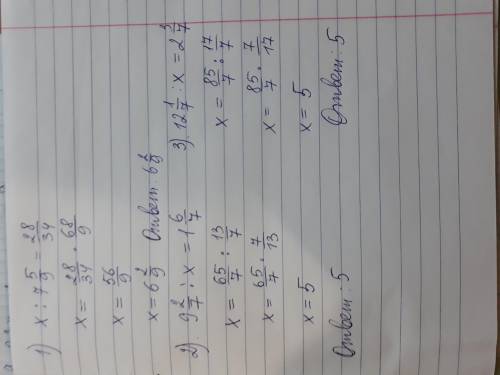 1) x : 7 5/9 = 28/34
x = 28/34 · 68/9
x = 56/9
x = 6 2/9 Ответ: 6 2/9
2). 9 2/7 : x = 1 6/7
x = 65/7 : 13/7
x = 65/7 · 7/13
x = 5
Ответ: 5
3) 12 1/7 : x = 2 3/7
x = 85/7 : 17/7
x = 85/7 · 7/17
x = 5
Ответ: 5